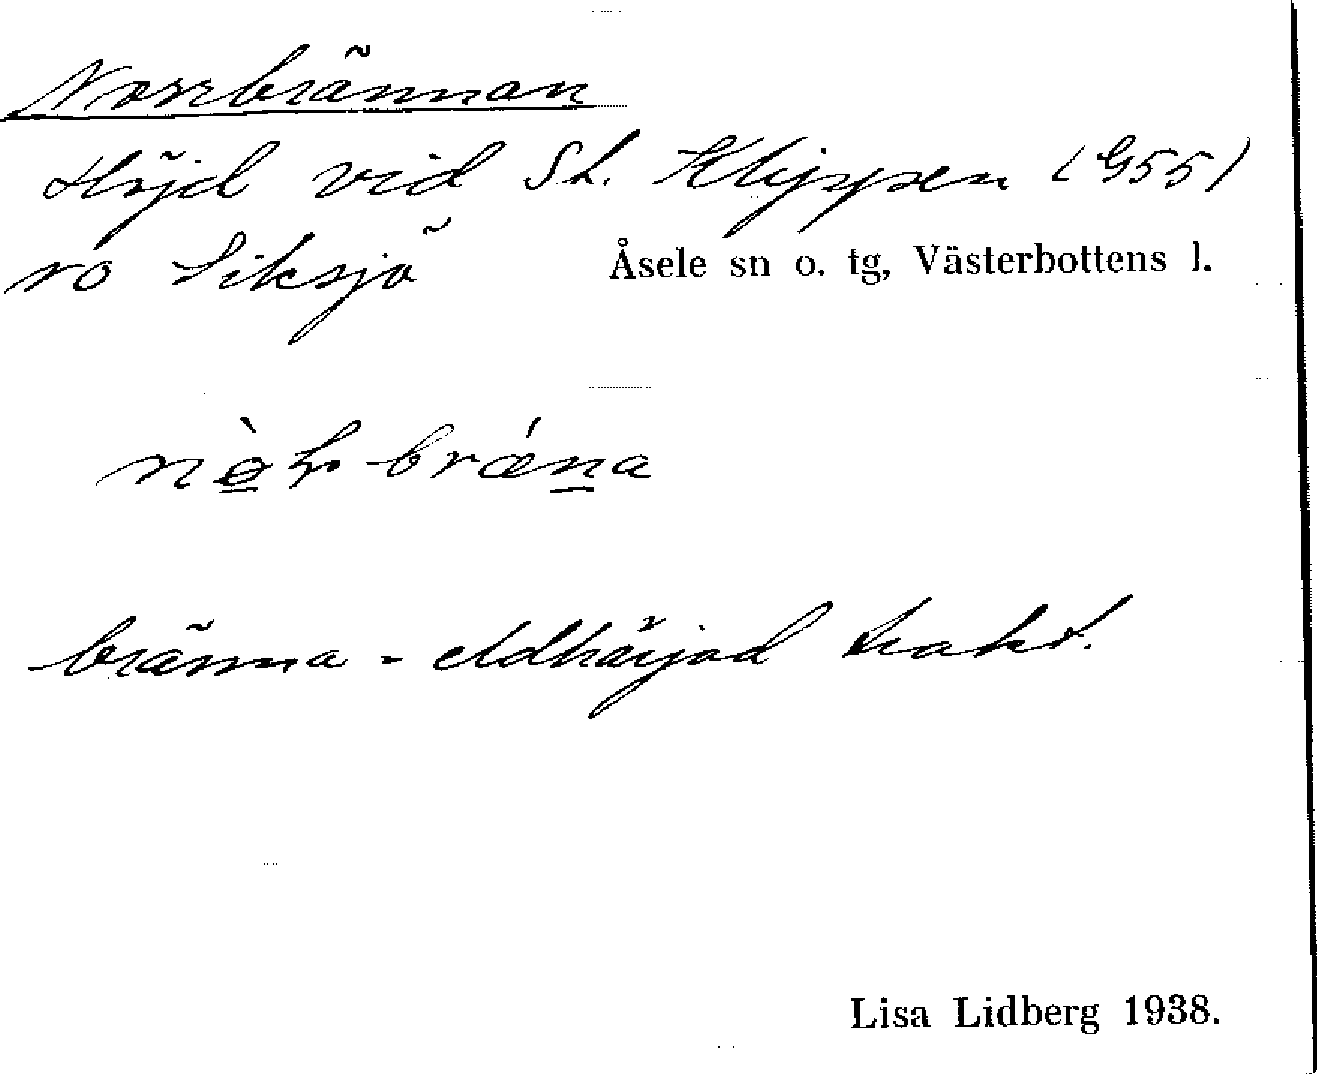 Norrbrännan
Höjd vid St. Klippen (G55)
ro Siksjö
Åsele sn o. tg, Västerbottens l.
bränna - eldhärjad trakt.
Lisa Lidberg 1938.